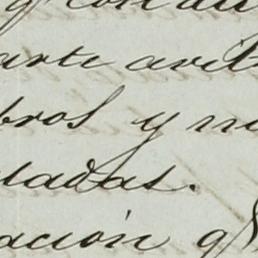 q. con
arte arit
bros y nu
ladas.
ación q